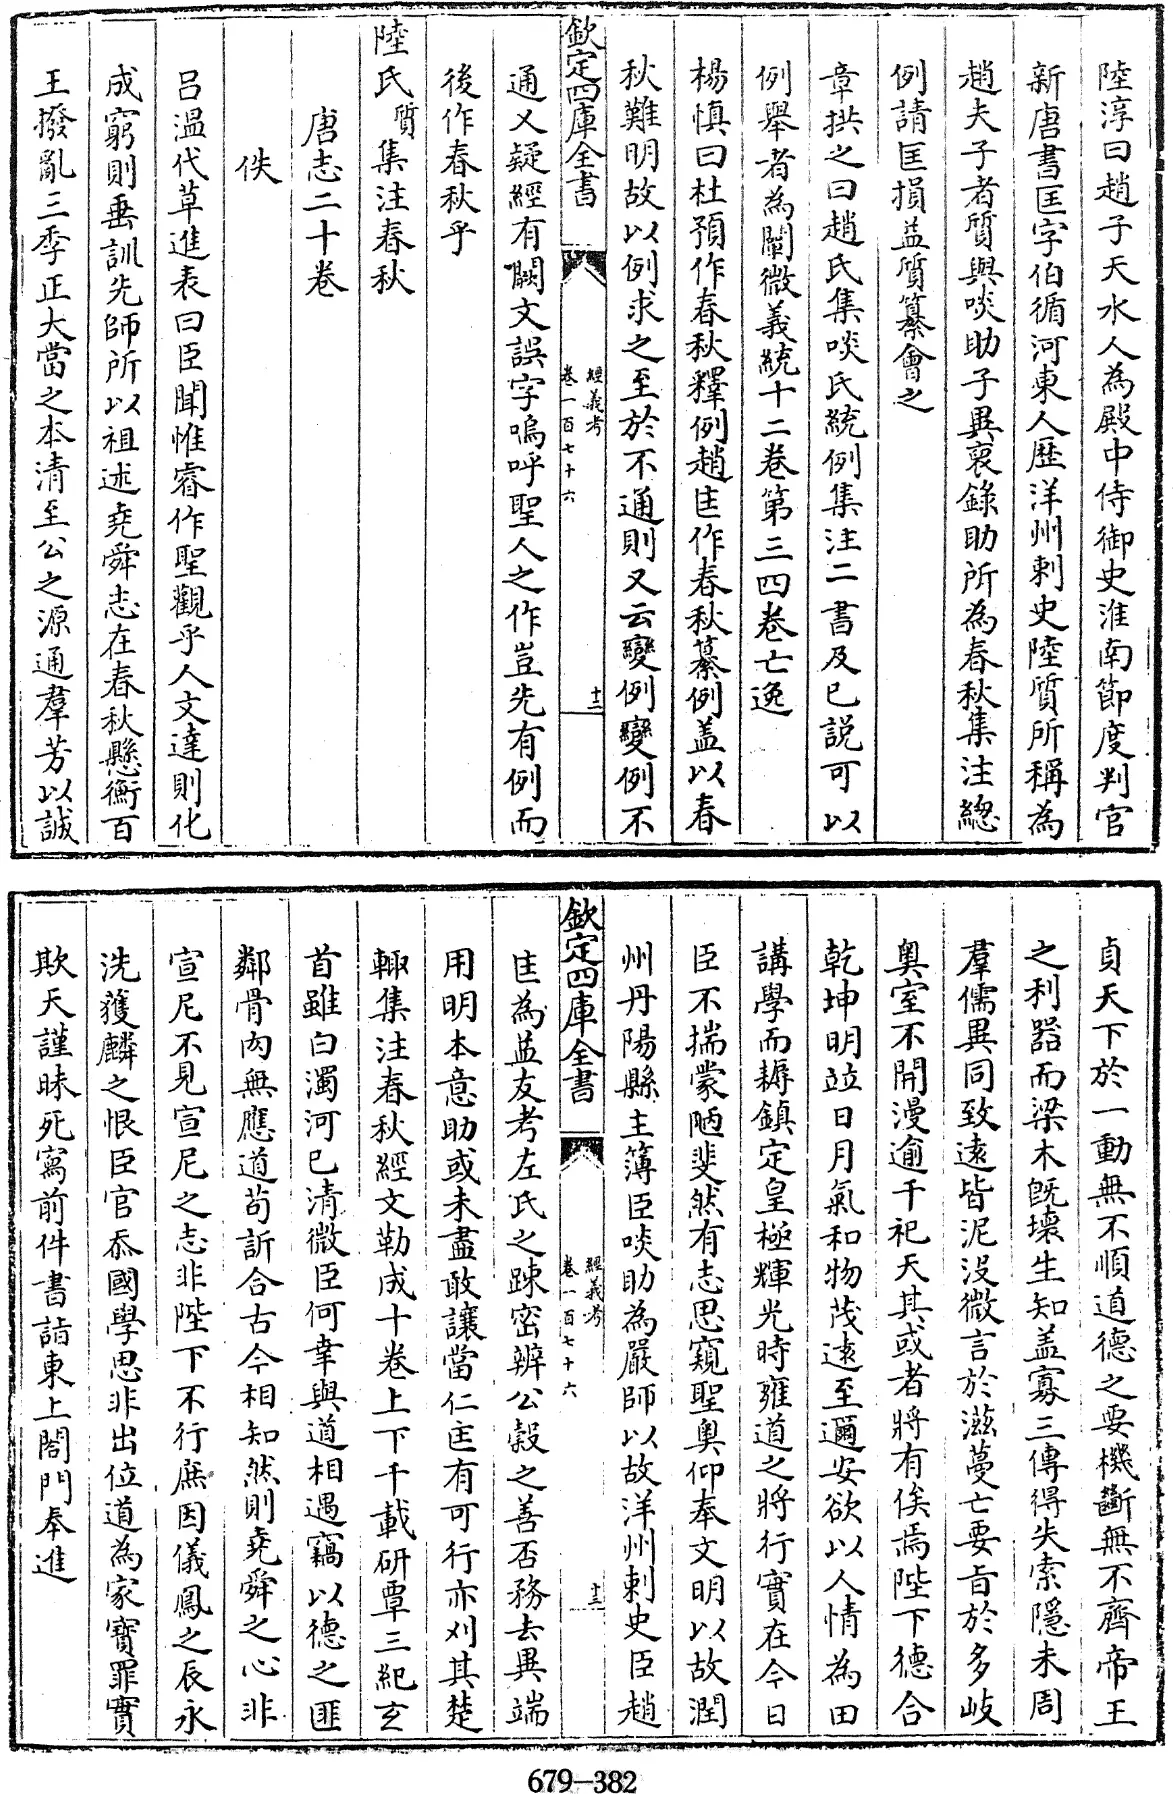 陸淳曰趙子天水人為殿中侍御史淮南節度判官
新唐書匡字伯循河東人歷洋州刺史陸質所稱為
趙夫子者質與啖助子異裒錄助所為春秋集注總
例請匡損益質纂會之
章拱之曰趙氏集啖氏統例集注二書及已說可以
例舉者為闡微義統十二卷第三四卷亡逸
楊慎曰杜預作春秋釋例趙匡作春秋纂例盖以春
秋難明故以例求之至於不通則又云變例變例不
欽定四庫全書
經義考
卷一百七十六
十二
通又疑經有闕文誤字嗚呼聖人之作豈先有例而
後作春秋乎
陸氏質集注春秋
唐志二十卷
佚
吕溫代草進表曰臣聞惟睿作聖觀乎人文達則化
成窮則垂訓先師所以祖述堯舜志在春秋懸衡百
王撥亂三季正大當之本清至公之源通羣芳以誠
貞天下於一動無不順道德之要機斷無不齊帝王
之利器而梁木既壞生知盖寡三傳得失索隱未周
羣儒異同致遠皆泥没微言於滋蔓亡要旨於多岐
奥室不開漫逾千祀天其或者將有俟焉陛下德合
乾坤明竝日月氣和物茂遠至邇安欲以人情為田
講學而耨鎮定皇極輝光時雍道之將行實在今日
臣不揣蒙陋斐然有志思窺聖奥仰奉文明以故潤
州丹陽縣主簿臣啖助為嚴師以故洋州刺史臣趙
欽定四庫全書
經義考
卷一百七十六
十三
匡為益友考左氏之踈密辨公穀之善否務去異端
用明本意助或未盡敢讓當仁匡有可行亦刈其楚
輙集注春秋經文勒成十卷上下千載研覃三紀玄
首雖白濁河已清微臣何幸與道相遇竊以德之匪
鄰骨肉無應道苟訢合古今相知然則堯舜之心非
宣尼不見宣尼之志非陛下不行庶因儀鳳之辰永
洗獲麟之恨臣官忝國學思非出位道為家寶罪實
欺天謹昧死寫前件書詣東上閤門奉進
679—382